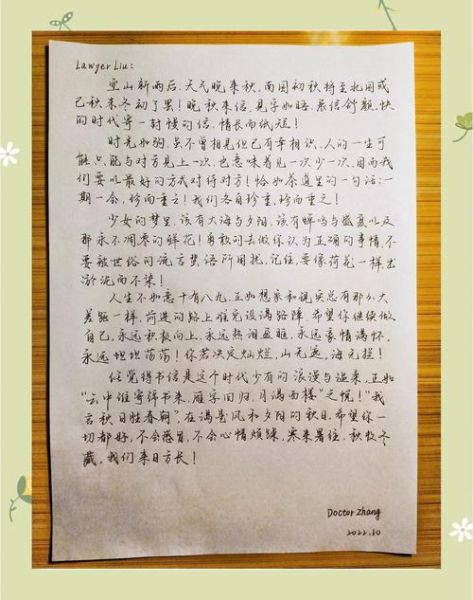 Lawyer Liu:
空山新雨后,天气晚来秋,南国初秋将至北国或
已秋末冬初了罢!晚秋来信,见字如晤,展信舒颜,快
的时代寄一封慢的信,情长而纸短!
时光如驹,虽不曾相见但已有幸相识,人的一生可
能只能与对方见上一次,也意味着见一次少一次,因而我
们要以最好的方式对待对方!恰如茶道里的一句话:一
期一会,珍而重之!我们各自珍重,珍而重之!
少女的梦里,该有大海与夕阳,该有蝉鸣与盛夏以及
那永不凋零的鲜花!勇敢的去做你认为正确的事情,不
要被世俗的流言蜚语所困扰,记住,要像荷花一样出
淤泥而不染!
人生不如意十有八九,正如想象和现实总有那么大
差距一样,前进的路上难免设满路障,希望你继续做
自己,永远积极向上,永远热泪盈眶,永远豪情满怀,
永远坦坦荡荡!你若决定灿烂,山无遮,海无拦!
任觉得书信是这个时代少有的浪漫与温柔,正如
“云中谁寄锦书来,雁字回归,月满西楼”之悦!“我
言秋日胜春朝”,在满是风和夕阳的秋日,希望你一
切都好,不会感冒,不会心情烦躁,寒来暑往,秋收冬
藏,我们来日方长!
Doctor Zhang
2022.10